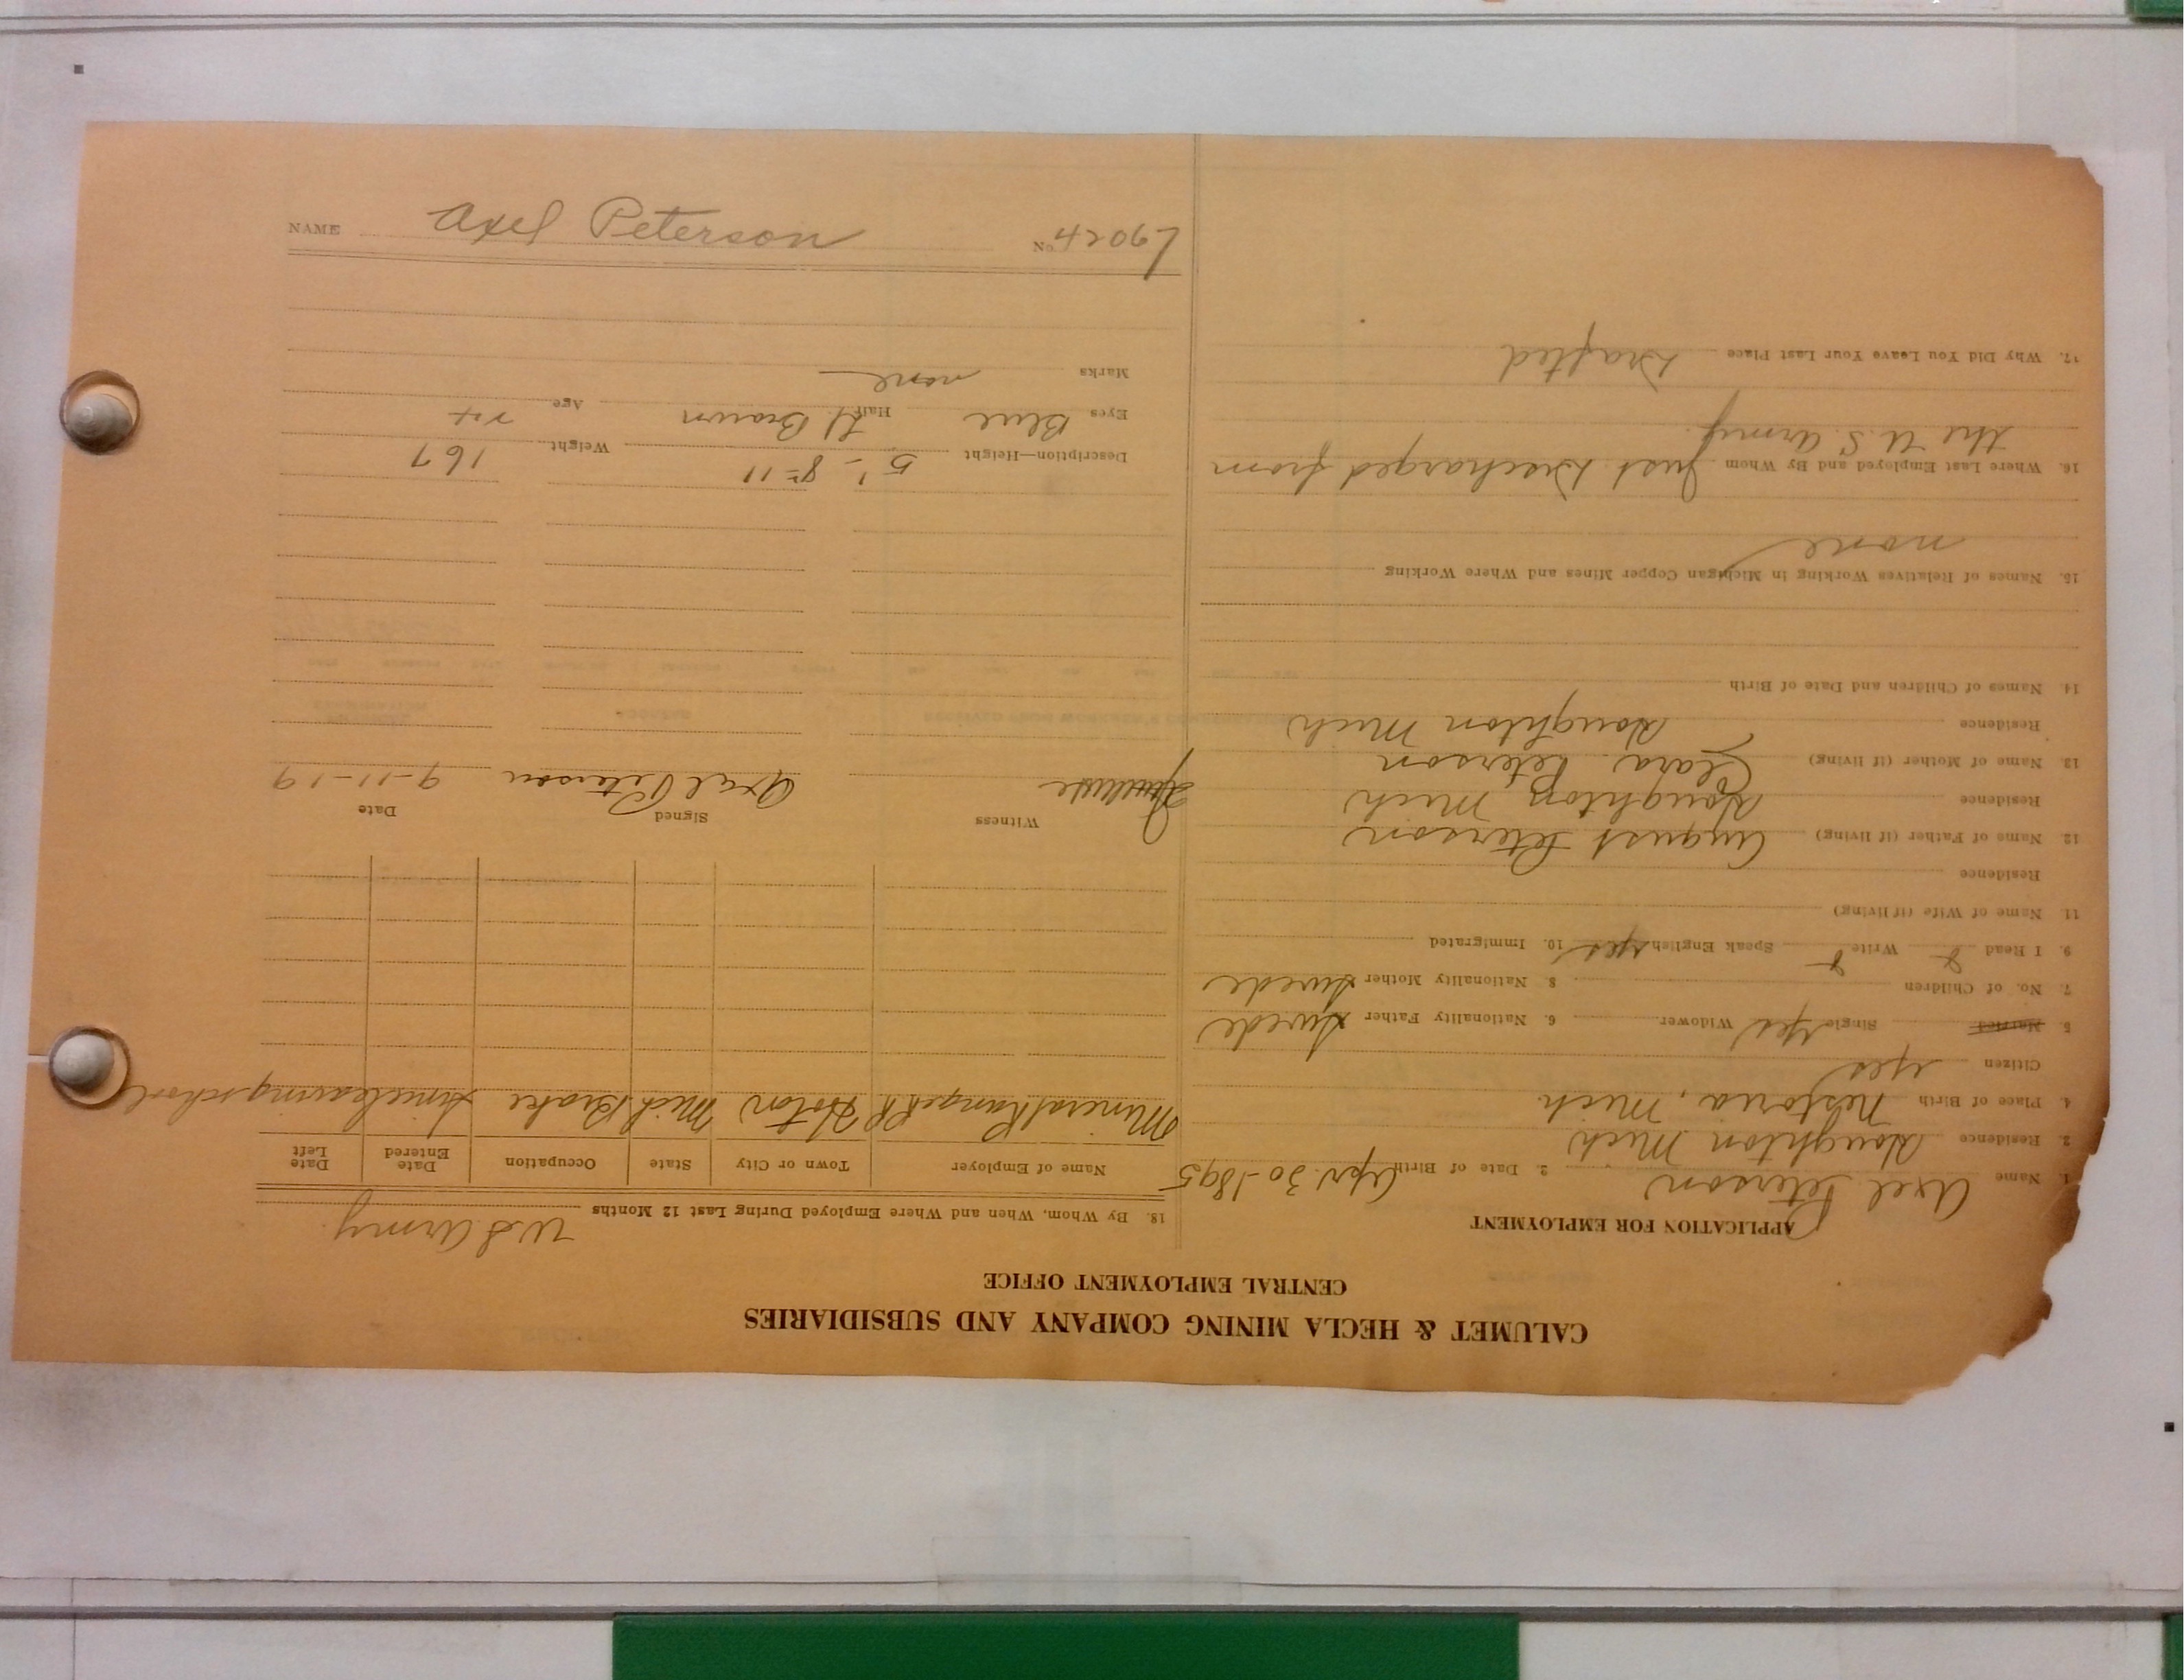 CALUMET & HECLA MINING COMPANY AND SUBSIDIARIES
CENTRAL EMPLOYMENT OFFICE
APPLICATION FOR EMPLOYMENT
1. Name Axel Peterson 2. Date of Birth Apr. 30-1895
3. Residence Houghton Mich
4. Place of Birth Nestoria, Mich.
Citizen yes
5. Married Single Yes Widower 6. Nationality Father Swede
7. No. of Children 8. Nationality Mother Swede
9. I Read Write Speak English yes 10. Immigrated
11. Name of Wife (if living)
Residence
12. Name of Father (if living) August Peterson
Residence Houghton Mich
13. Name of Mother (if living) Clara Peterson
Residence Houghton Mich
14. Names of Children and Date of Birth
15. Names of Relatives Working in Michigan Copper Mines and Where Working
none
16. Where Last Employed and By Whom Just Discharged from
the U.S. Army.
17. Why Did You Leave Your Last Place Drafted
18. By Whom, When and Where Employed During Last 12 Months U S Army.
Name of Employer Town or City State Occupation Date Entered Date Left
Mineral Range RR Hoton Mich Brake Since leaving school
Witness Signed Date
Axel Peterson 9-11-19
Description—Height 5'-8" Weight 167
Eyes Blue Hair Lt Brown Age 24
Marks none
NAME Axel Peterson No.